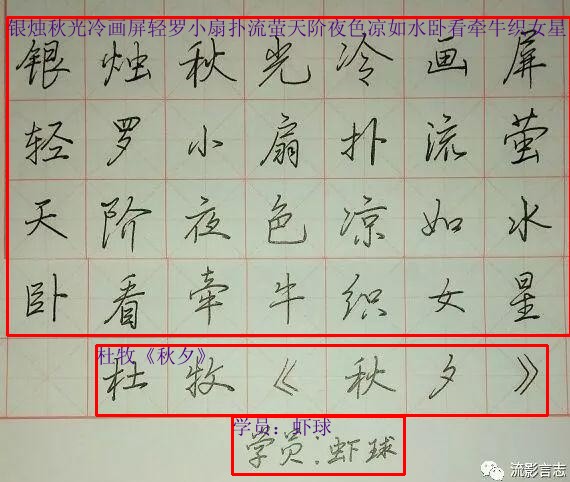 银烛秋光冷画屏轻罗小扇扑流萤天阶夜色凉如水卧看牵牛织女星
银烛秋光冷画屏
轻罗小扇扑流萤
天阶夜色凉如水
卧看牵牛织女星
杜牧《秋夕》
杜牧《秋夕》
学员：虾球
学员：虾球
流影言志